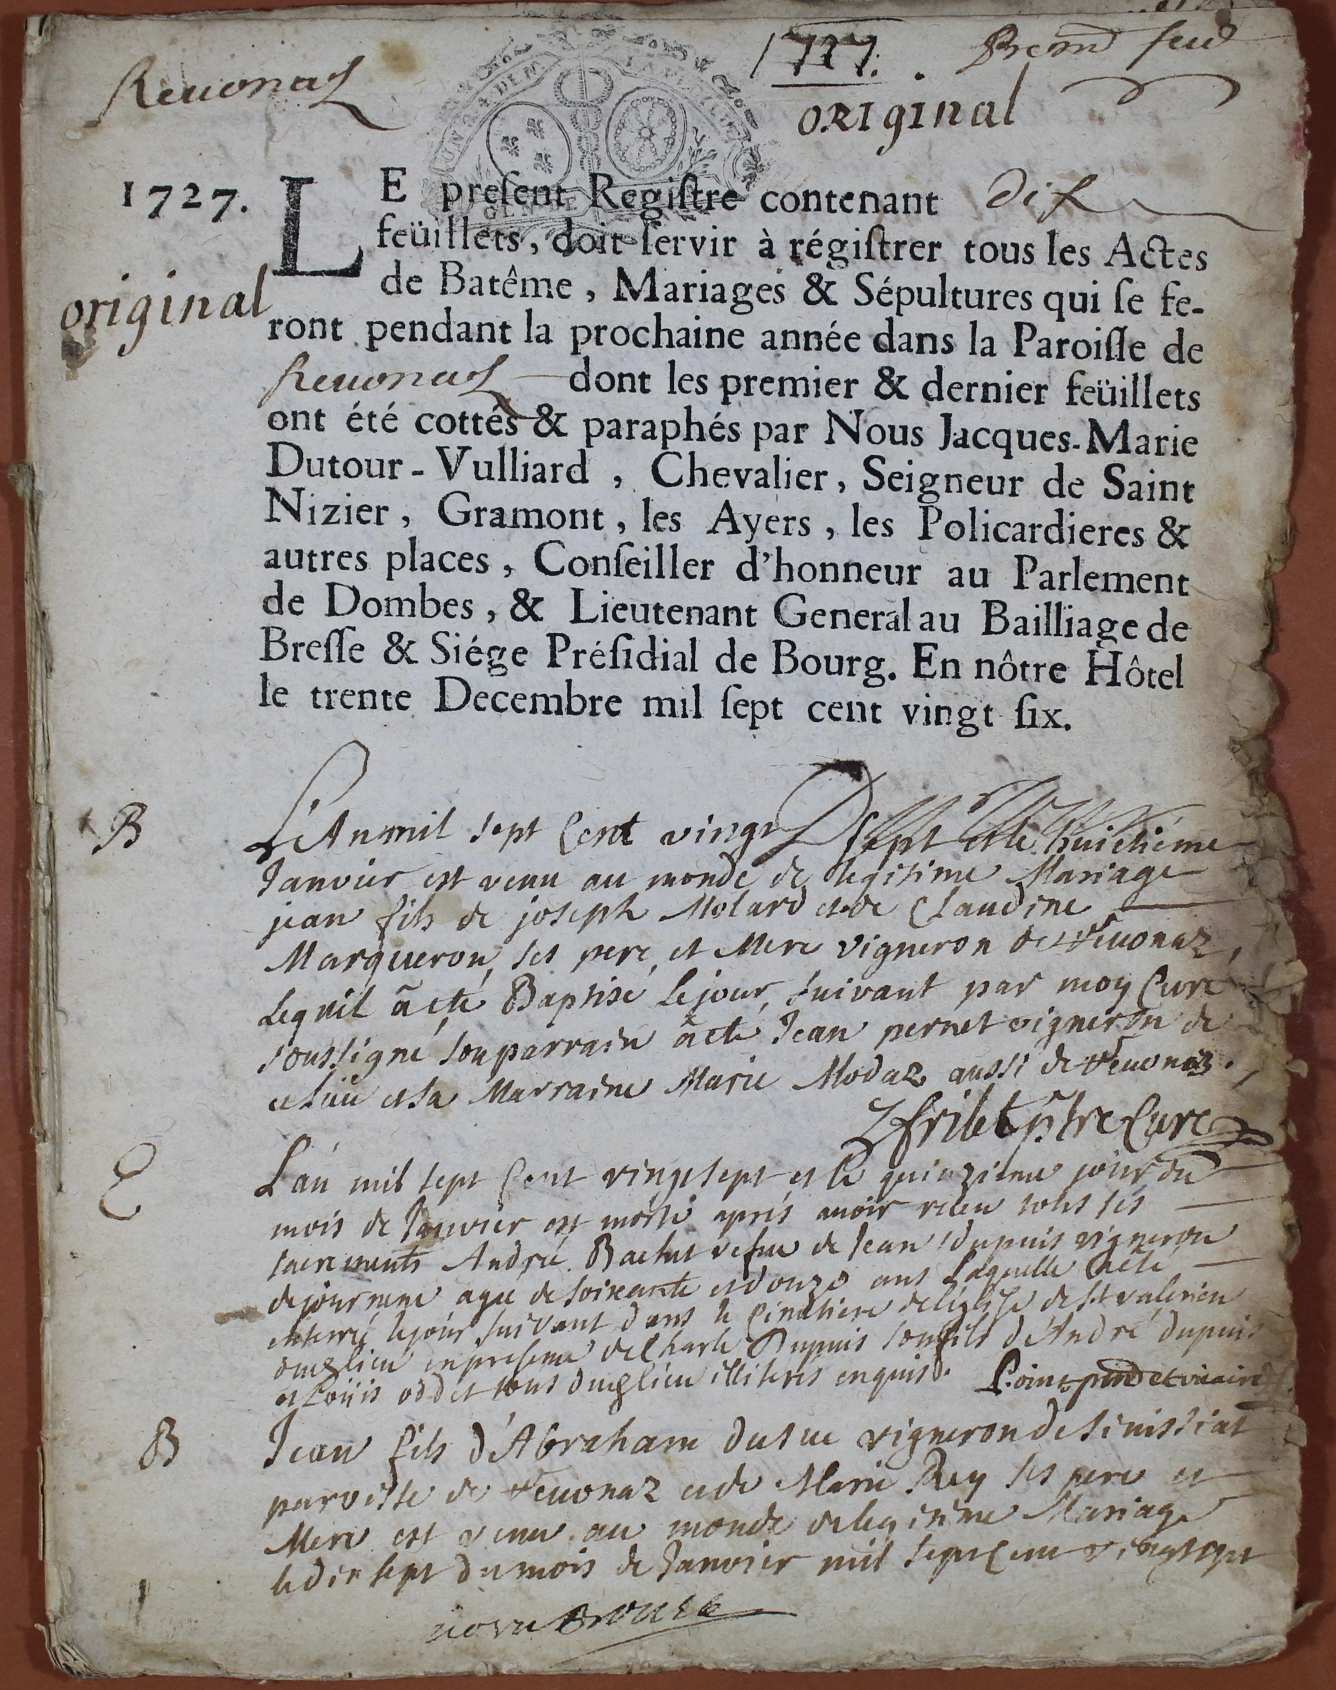 Reuonas
1727. Prem feu
original
GEN DE
1727.
LE preſent Regiſtre contenant dix
feüillets, doit ſervir à régiſtrer tous les Actes
de Batême, Mariages & Sépultures qui ſe fe-
original
ront pendant la prochaine année dans la Paroiſſe de
Reuonas dont les premier & dernier feüillets
ont été cottés & paraphés par Nous Jacques-Marie
Dutour-Vulliard, Chevalier, Seigneur de Saint
Nizier, Gramont, les Ayers, les Policardieres &
autres places, Conſeiller d'honneur au Parlement
de Dombes, & Lieutenant General au Bailliage de
Breſſe & Siége Préſidial de Bourg. En nôtre Hôtel
le trente Decembre mil ſept cent vingt ſix.
B
L'An mil sept Cent vingt sept et le huictiéme
Janvier est venu au monde de legitime Mariage
jean fils de joseph Molard et de Claudine
Marqueron ses pere et Mere vigneron de Reuonaz,
Lequil a été Baptisé le jour suivant par moy Curé
soussigné son parrain a été Jean pernet vigneron de
ce lieu et sa Marraine Marie Modaz aussi de Reuonaz.
frilet ptre Curé
E
L'an mil sept Cent vingt sept et le quinzieme jour du
mois de Janvier est morte aprés avoir receu tous ses
sacrements André Bachut vefue de Jean dupuis vigneron
de journens agee de soixante et douze ans Laquelle a été
enterré le jour suivant dans le Cimetiere de l'église de St valerien
dudlieu en presence de Charle Dupuis son fils d'André dupuis
et Loüis oddet tous dudlieu illiteres enquis.
B
Jean fils d'Abraham dutue vigneron de Senissiat
paroisse de Reuonaz et de Marie Rey ses pere et
Mere est venu au monde de legitime Mariage
le dix sept du mois de Janvier mil sept Cent vingt sept